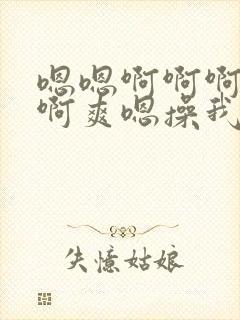 嗯嗯啊啊啊
啊爽嗯操我
失憶姑娘